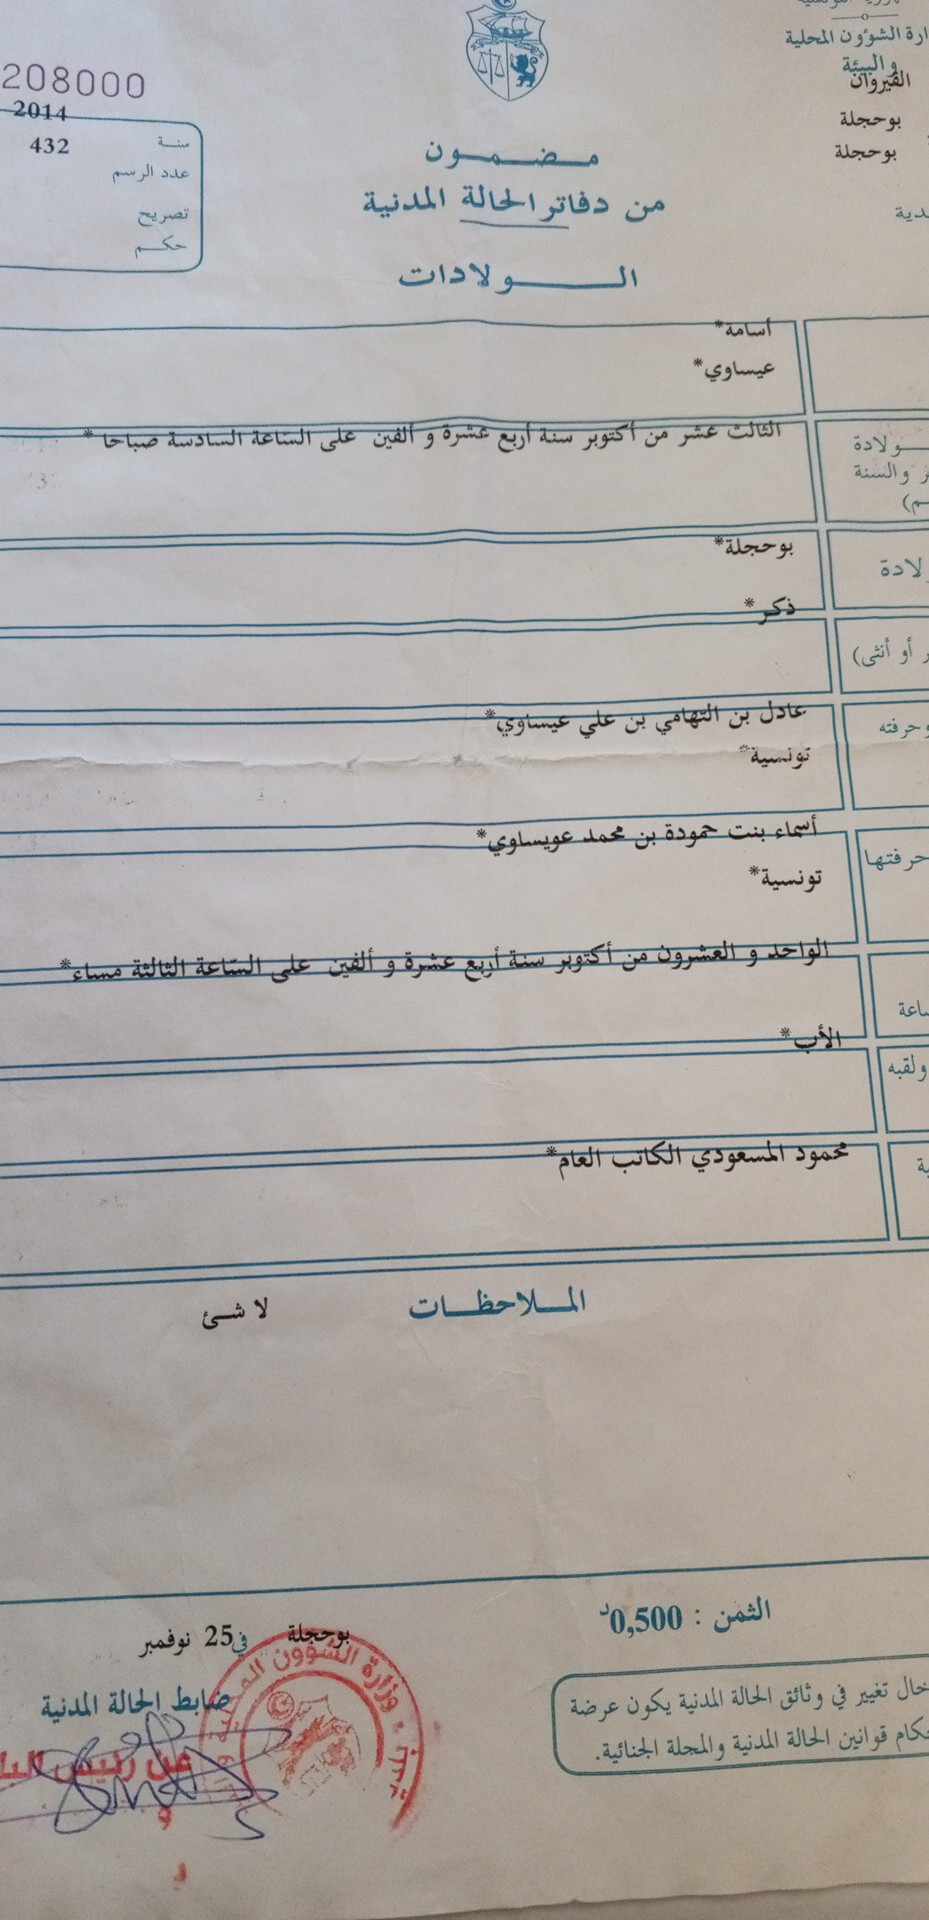 وزارة الشؤون المحلية
والبيئة
القيروان
بوحجلة
بوحجلة
208000
2014
سنة
432
عدد الرسم
تصريح
حكم
مضمون
من دفاتر الحالة المدنية
الولادات
أسامة*
عيساوي*
الثالث عشر من أكتوبر سنة أربع عشرة و ألفين على الساعة السادسة صباحا *
والسنة
بوحجلة*
ذكر*
أو أنثى)
عادل بن التهامي بن علي عيساوي*
وحرفته
تونسية*
أسماء بنت حمودة بن محمد عويساوي*
حرفتها
تونسية*
الواحد و العشرون من أكتوبر سنة أربع عشرة و ألفين على الساعة الثالثة مساء*
الأب*
ولقبه
محمود المسعودي الكاتب العام*
الملاحظات
لا شئ
الثمن : 0,500د
بوحجلة في 25 نوفمبر
ضابط الحالة المدنية
عن رئيس
وزارة الشؤون
تغيير في وثائق الحالة المدنية يكون عرضة
قوانين الحالة المدنية والمجلة الجنائية.